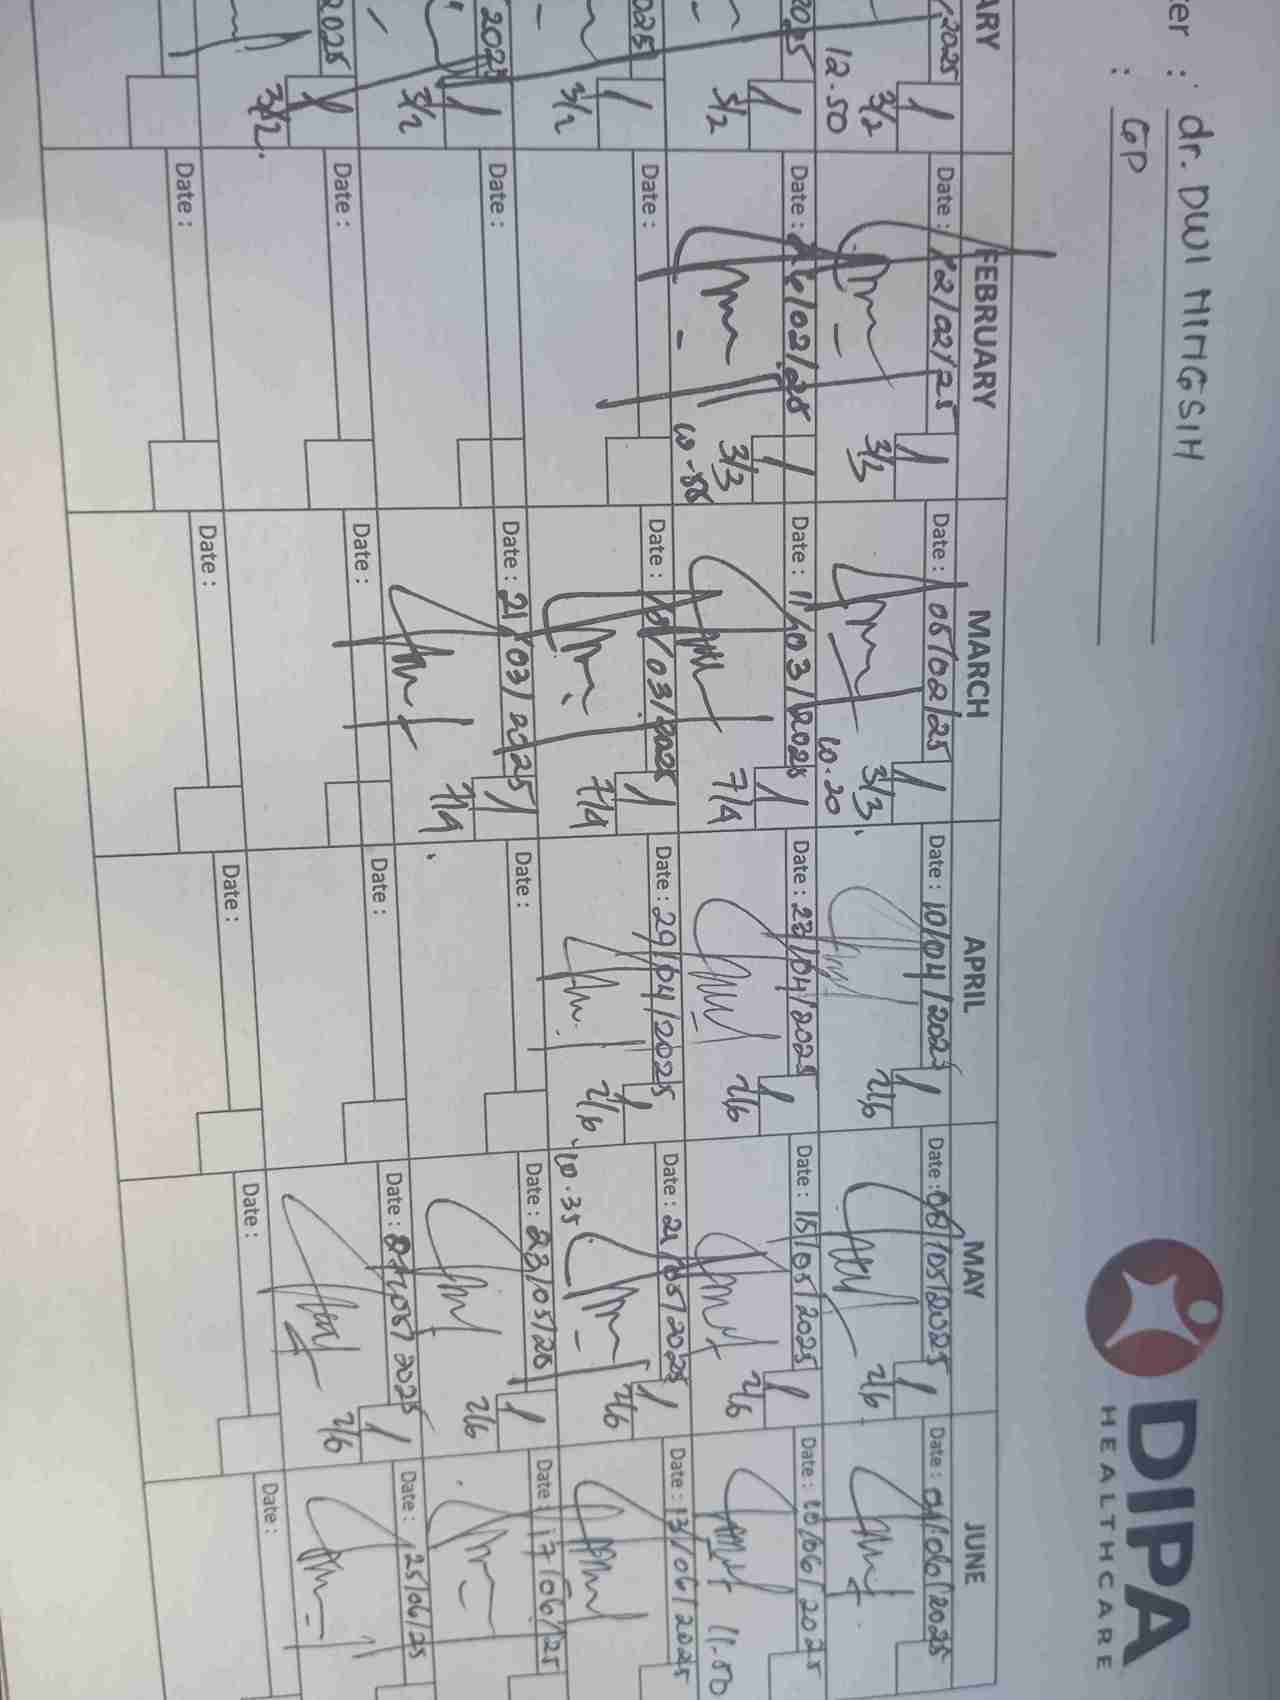 DIPA
HEALTHCARE
ter : dr. DWI HIHGSIH
: GP
ARY
FEBRUARY
MARCH
APRIL
MAY
JUNE
/2025
3/2
12.50
Date : 12/02/25
3/3
Date : 05/02/25
3/3.
10.20
Date : 10/04/2025
2/6
Date : 08/05/2025
2/6
Date : 04/06/2025
2025
3/2
Date : 26/02/25
3/3
10.55
Date : 11/03/2025
7/4
Date : 22/04/2025
2/6
Date : 15/05/2025
2/6
Date : 10/06/2025
11.50
025
3/2
Date :
Date : 18/03/2025
7/4
Date : 29/04/2025
2/6.
10.35
Date : 21/05/2025
2/6
Date : 13/06/2025
2025
3/2
Date :
Date : 21/03/2025
7/4
Date :
Date : 23/05/25
2/6
Date : 17/06/25
2025
3/2.
Date :
Date :
Date :
Date : 27/05/2025
2/6
Date : 25/06/25
Date :
Date :
Date :
Date :
Date :